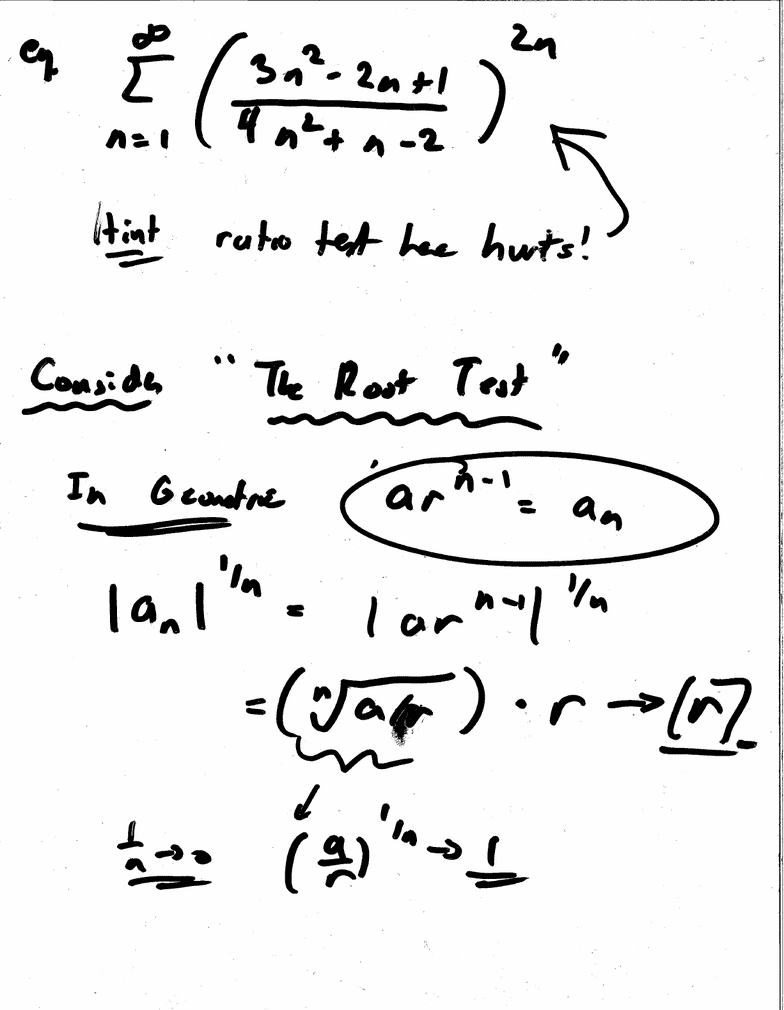 eg ∞ ∑ n=1 ( (3n² - 2n + 1) / (4n² + n - 2) )^{2n}
Hint ratio test here hurts!
Consider "The Root Test"
In Geometric ar^{n-1} = a_n
|a_n|^{1/n} = |ar^{n-1}|^{1/n}
= (ⁿ√a/r) · r → |r|
1/n → 0 (a/r)^{1/n} → 1